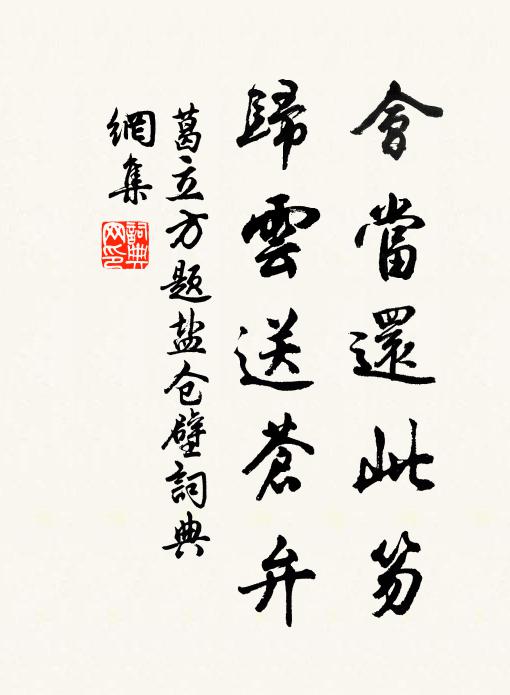 會當還此笏
歸雲送蒼弁
葛立方題盐仓壁詞典
網集
詞典
网印